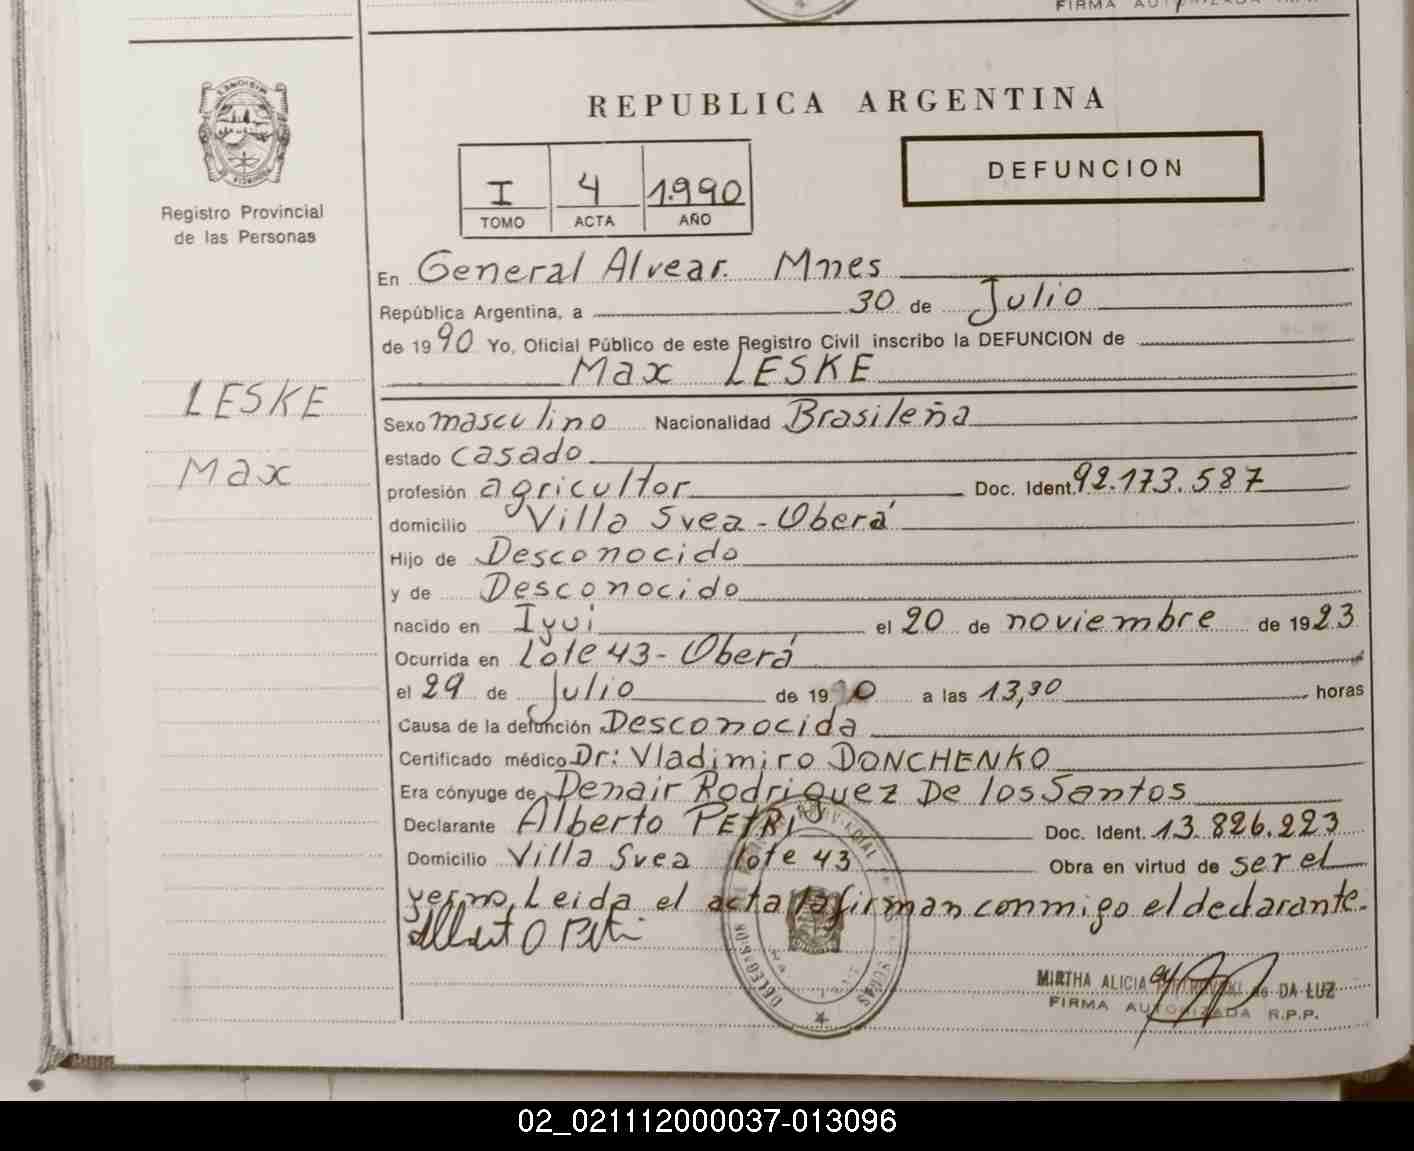 FIRMA AUTORIZADA R.P.P.
REPUBLICA ARGENTINA
DEFUNCION
I 4 1.990
TOMO ACTA AÑO
Registro Provincial
de las Personas
En General Alvear. Mnes
República Argentina, a 30 de Julio
de 1990 Yo, Oficial Público de este Registro Civil inscribo la DEFUNCION de
Max LESKE
LESKE
Max
Sexo masculino Nacionalidad Brasileña
estado casado
profesión agricultor Doc. Ident. 92.173.587
domicilio Villa Svea - Oberá
Hijo de Desconocido
y de Desconocido
nacido en Iyui el 20 de noviembre de 1923
Ocurrida en Lote 43 - Oberá
el 29 de Julio de 1990 a las 13,30 horas
Causa de la defunción Desconocida
Certificado médico Dr: Vladimiro DONCHENKO
Era cónyuge de Denair Rodriguez De los Santos
Declarante Alberto PETRI Doc. Ident. 13.826.223
Domicilio Villa Svea lote 43 Obra en virtud de ser el
yerno. Leida el acta la firman conmigo el declarante.
MIRTHA ALICIA de DA LUZ
FIRMA AUTORIZADA R.P.P.
02_021112000037-013096